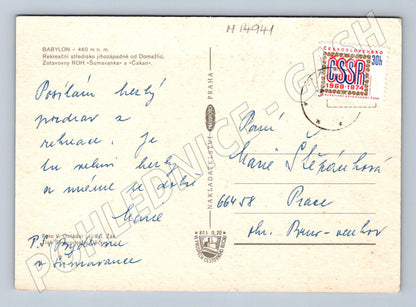 M 14941
BABYLON - 460 m n. m.
Rekreační středisko jihozápadně od Domažlic.
Zotavovny ROH „Šumavanka" a „Čakan".
ČESKOSLOVENSKO
30h
ČSSR
1968-1974
Posílám hezký
pozdrav z
rekreace. Je
tu velmi hezky
a máme se dobře
Marie
P.S. Bydlíme
v Šumavance
NAKLADATELSTVÍ
PRAHA
Paní
Marie Štěpánková
66458 Prace
okr. Brno-venkov
Foto V.
POHLEDNICE - CASH